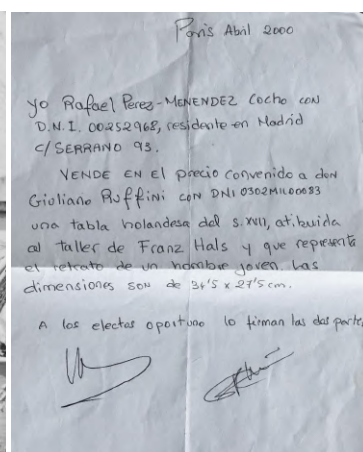 París Abril 2000
yo Rafael Perez-MENENDEZ Cocho con
D.N.I. 00252968, residente en Madrid
C/ SERRANO 93.
VENDE EN El precio convenido a don
Giuliano Ruffini con DNI 0302MIL00083
una tabla holandesa del s. XVII, atribuida
al taller de Franz Hals y que representa
el retrato de un hombre joven. Las
dimensiones son de 34'5 x 27'5 cm.
A los efectos oportuno lo firman las dos partes